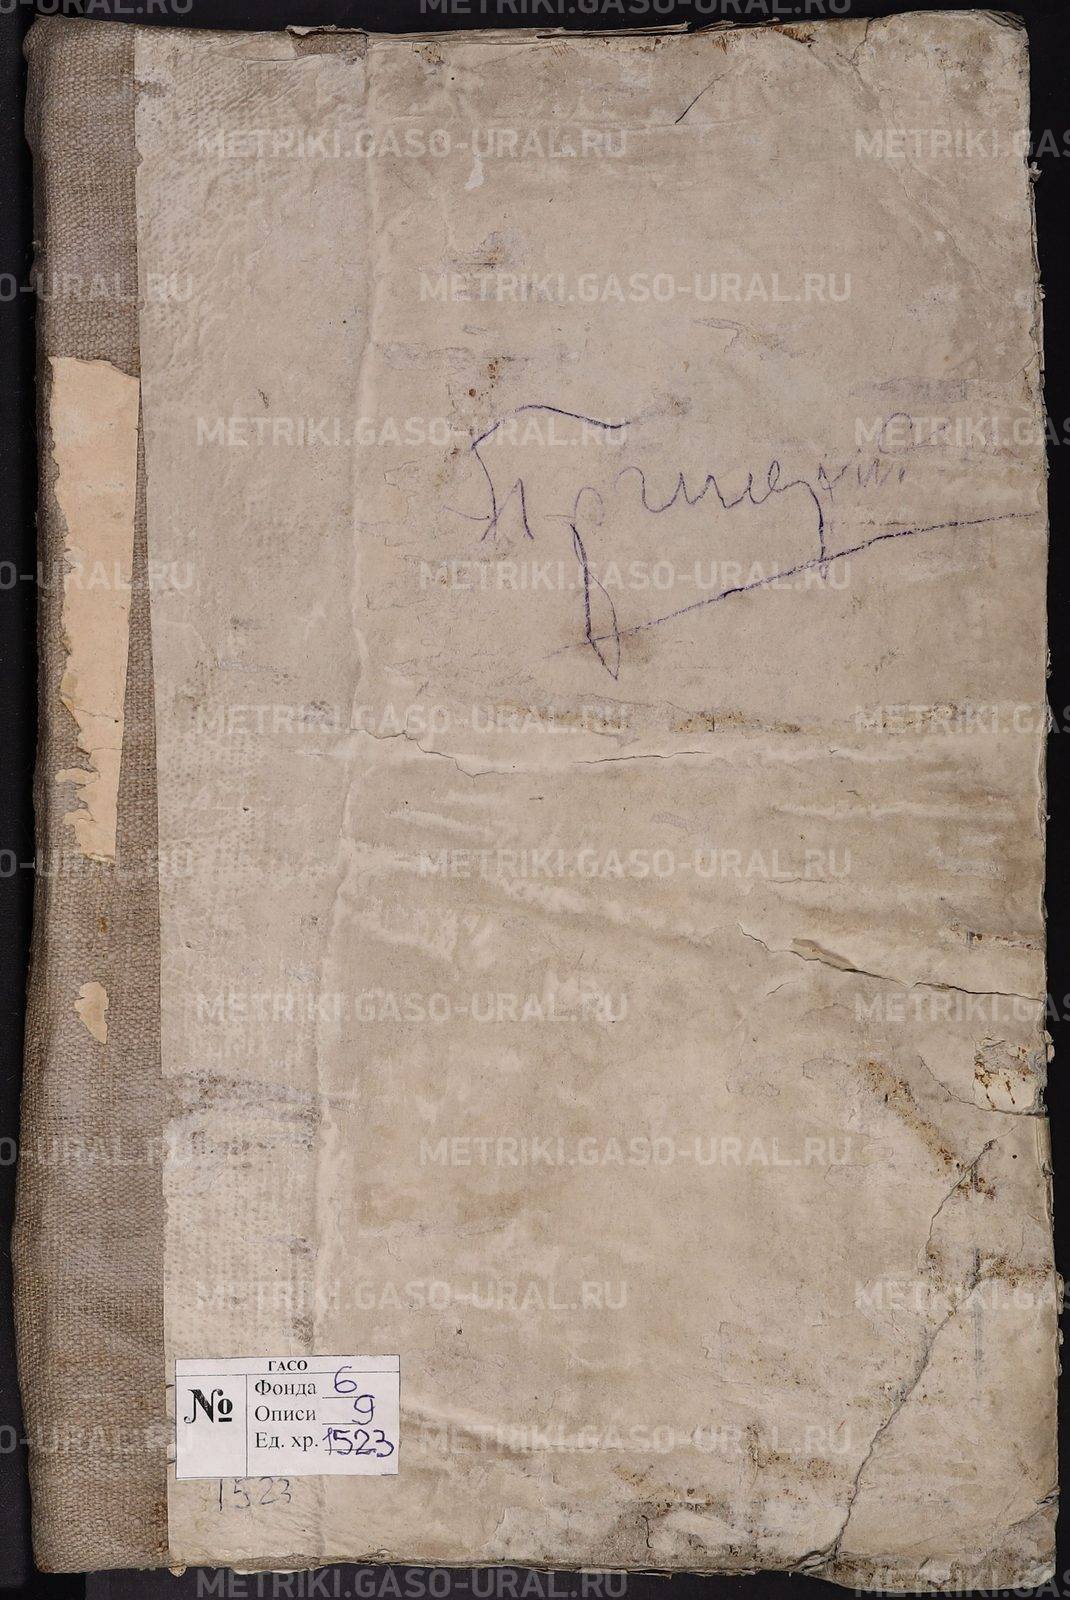 ГАСО
№
Фонда 6
Описи 9
Ед. хр. 1523
1523
METRIKI.GASO-URAL.RU